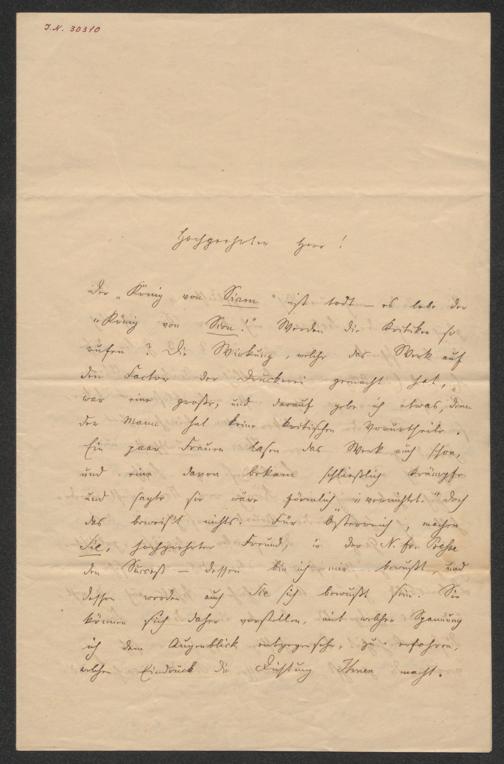 J.N. 30310
Hochgeehrter Herr!
Der „König von Siam" ist todt – es lebe der
„König von Sion!" Werden die Kritiker so
rufen? Die Wirkung, welche das Werk auf
den Factor der Druckerei gemacht hat,
war eine große, und darauf gebe ich etwas, denn
der Mann hat keine kritischen Vorurtheile.
Ein paar Frauen lasen das Werk auch schon,
und eine davon bekam schließlich Krämpfe
und sagte sie wäre förmlich „vernichtet." Doch
das beweist nichts. Für Österreich, machen
Sie, hochgeehrter Freund, in der N. fr. Presse
den Succeß – dessen bin ich mir bewußt, und
dessen werden auch Sie sich bewußt sein. Sie
können sich daher vorstellen, mit welcher Spannung
ich dem Augenblick entgegensehe, zu erfahren,
welchen Eindruck die Dichtung Ihnen macht.